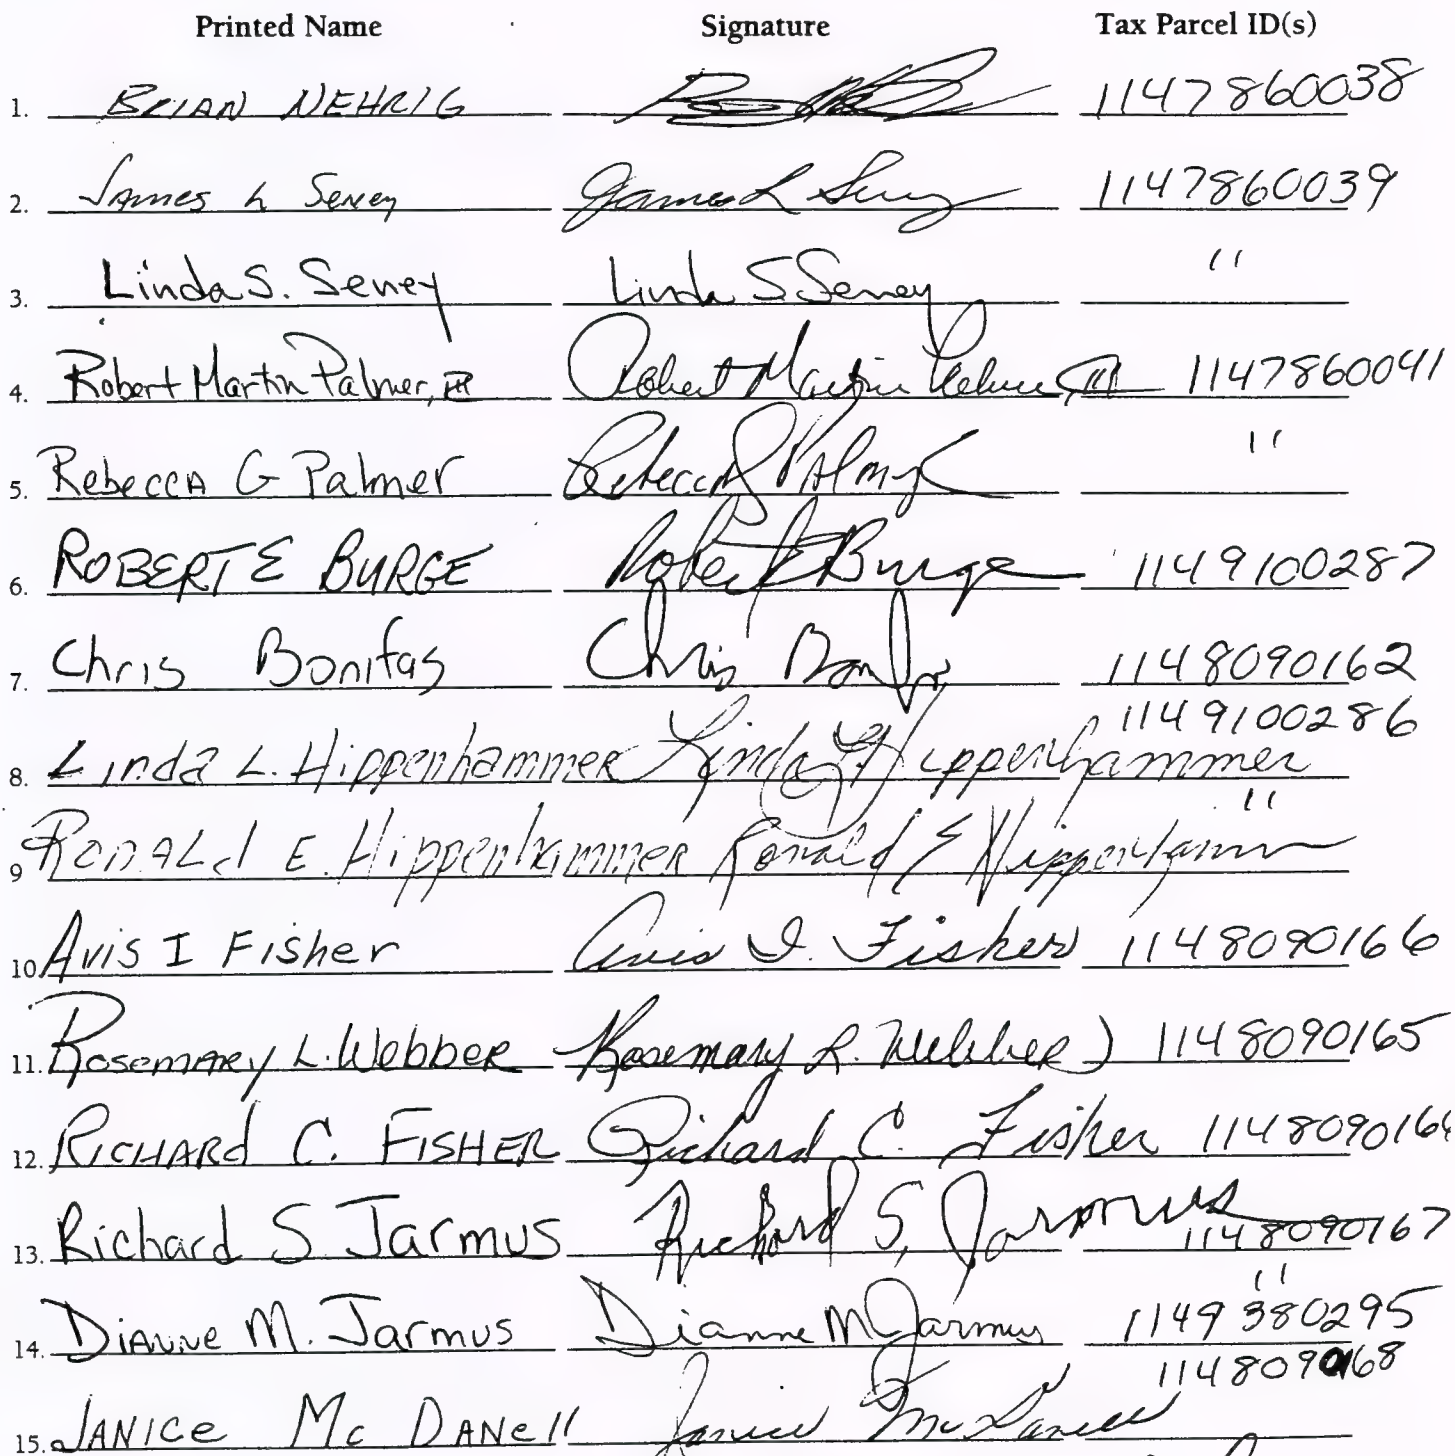 Printed Name Signature Tax Parcel ID(s)
1. BRIAN NEHRIG 1147860038
2. James L Seney James L Seney 1147860039
3. Linda S. Seney Linda S Seney "
4. Robert Martin Palmer, III Robert Martin Palmer, III 1147860041
5. Rebecca G Palmer Rebecca G Palmer "
6. ROBERT E BURGE Robert E Burge 1149100287
7. Chris Bonifas Chris Bonifas 1148090162
1149100286
8. Linda L. Hippenhammer Linda L. Hippenhammer
"
9 Ronald E. Hippenhammer Ronald E Hippenhammer
10. Avis I Fisher Avis I. Fisher 1148090166
11. Rosemary L. Webber Rosemary L. Webber 1148090165
12. RICHARd C. FISHER Richard C. Fisher 1148090166
13. Richard S Jarmus Richard S. Jarmus 1148090167
"
14. Dianne M. Jarmus Dianne M Jarmus 1149380295
1148090168
15. JANICE Mc DANell Janice McDanell